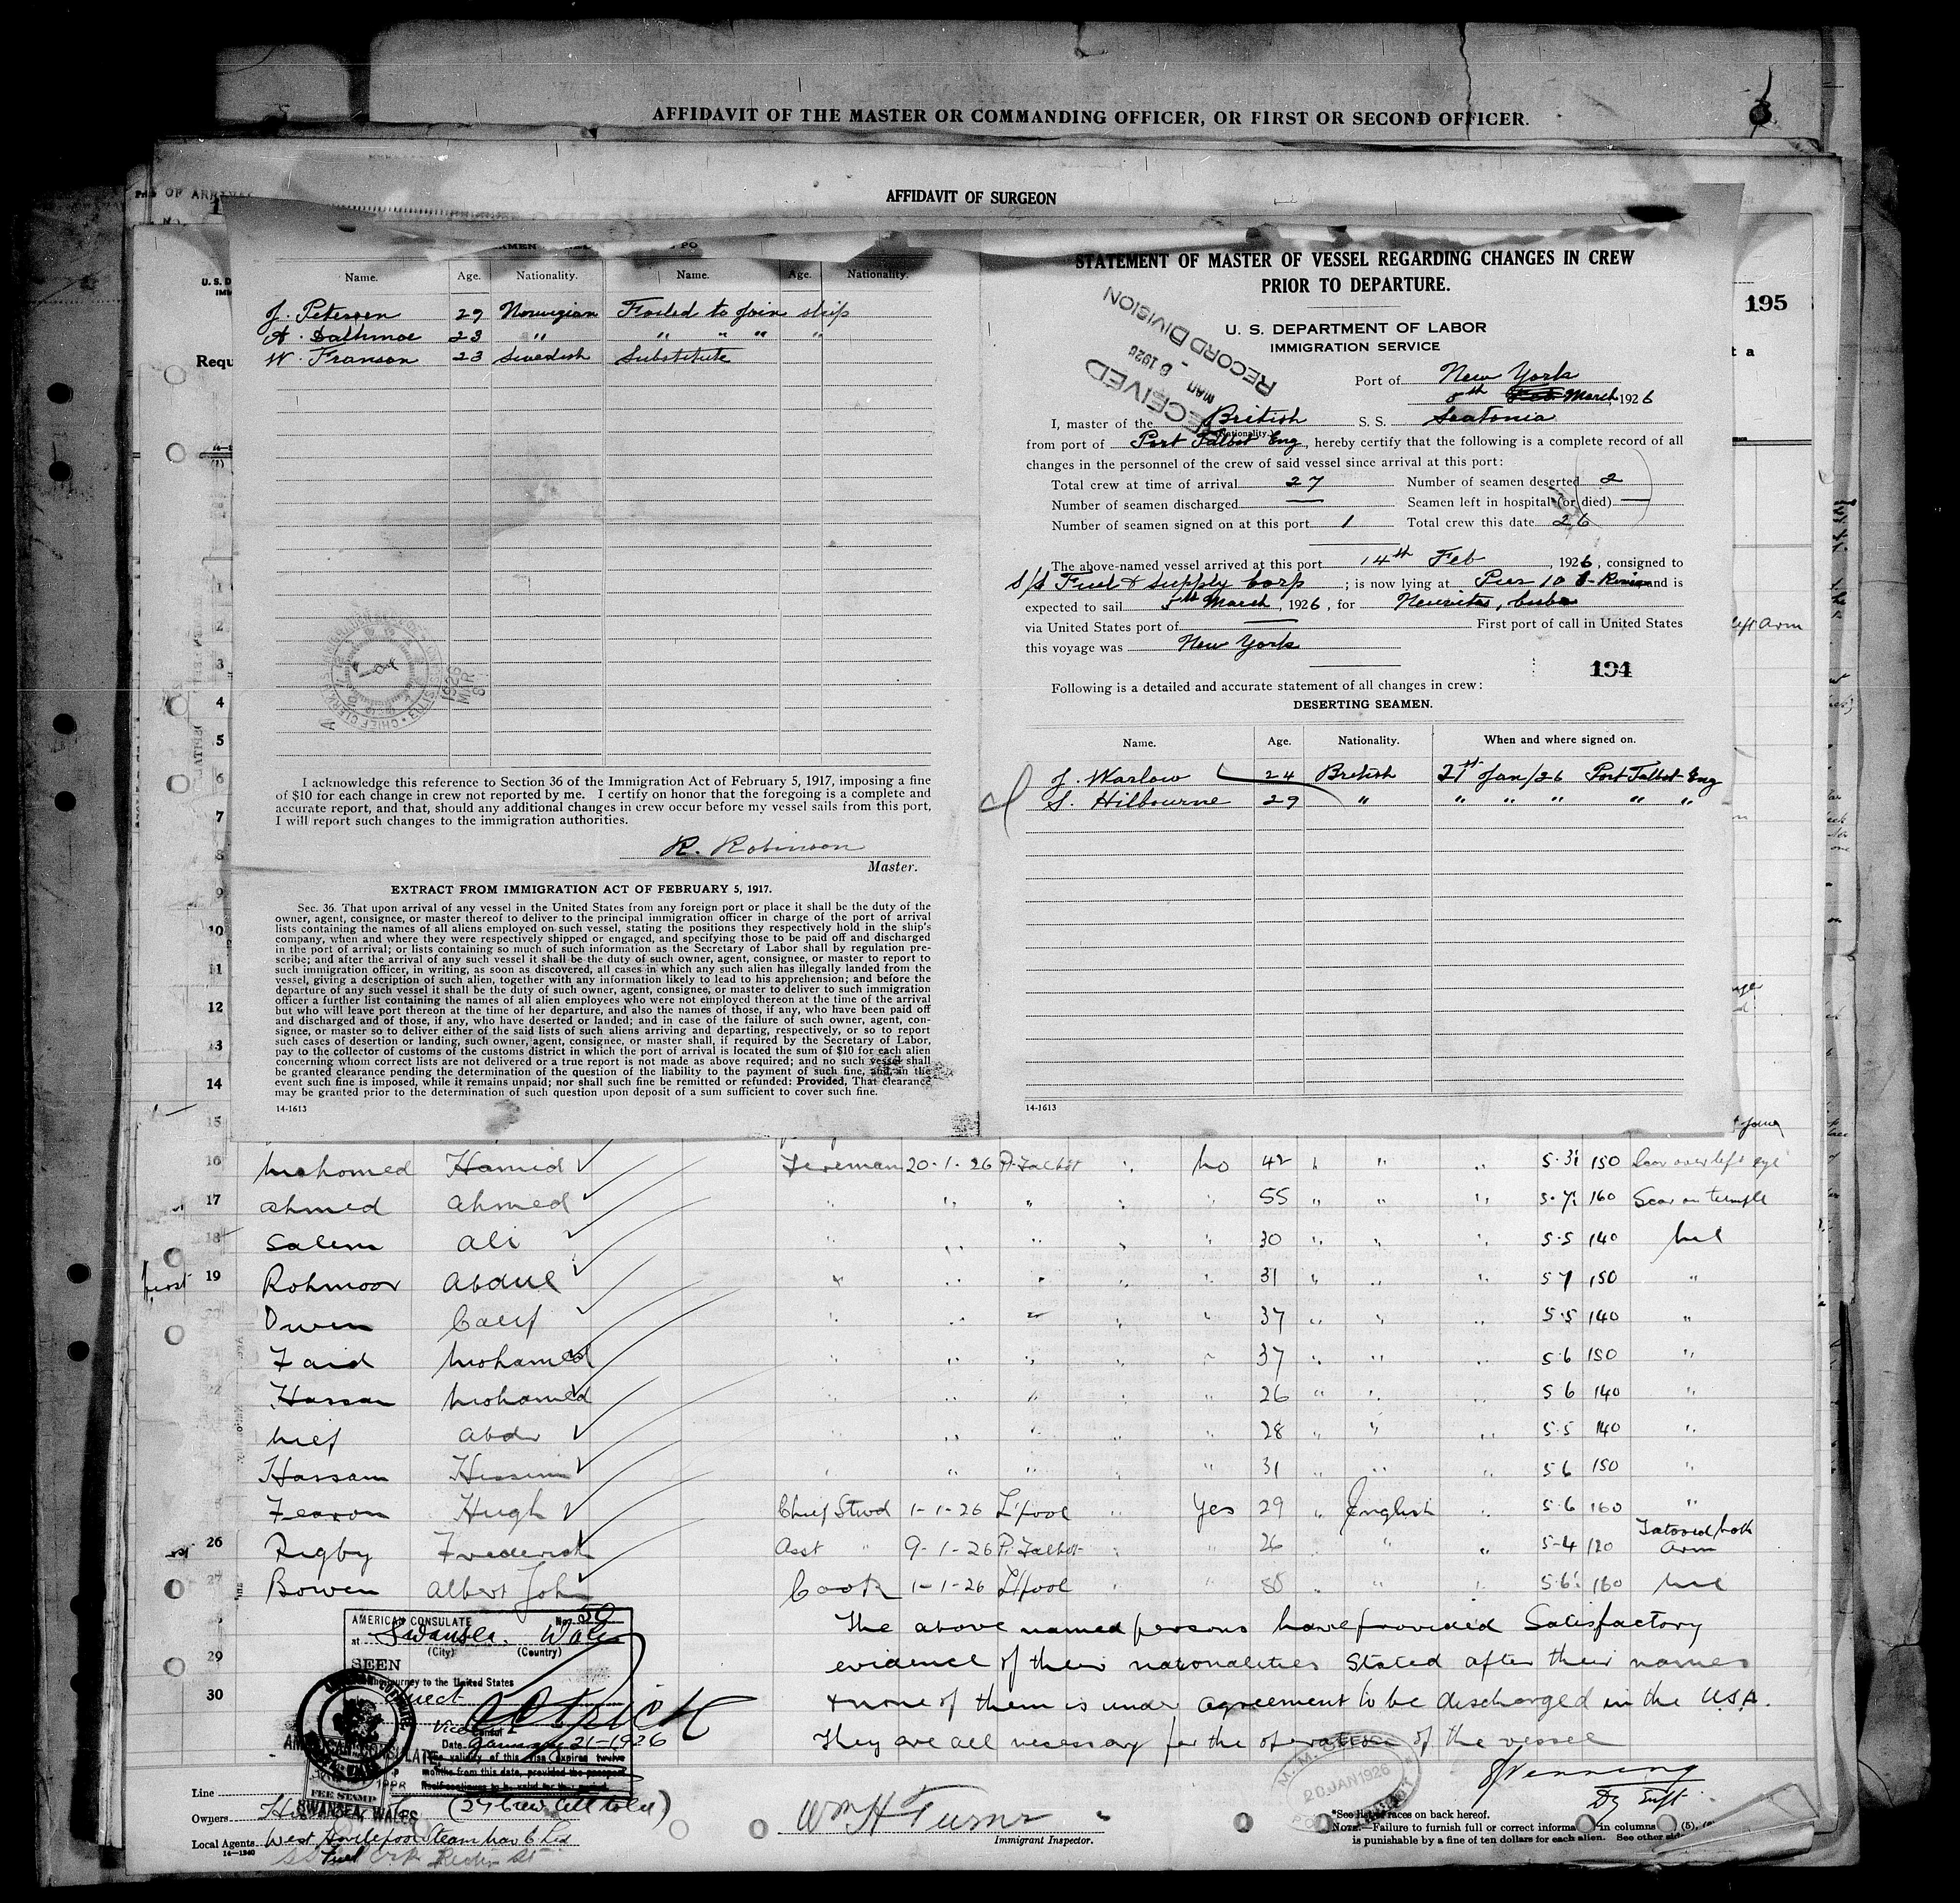 AFFIDAVIT OF THE MASTER OR COMMANDING OFFICER, OR FIRST OR SECOND OFFICER.
AFFIDAVIT OF SURGEON
Name. Age. Nationality. Name. Age. Nationality.
J. Petersen 29 Norwigian Failed to join ship
A. Dalhmoe 23 " " " " "
W. Franson 23 Swedish Substitute
MAR 8 1926
I acknowledge this reference to Section 36 of the Immigration Act of February 5, 1917, imposing a fine
of $10 for each change in crew not reported by me. I certify on honor that the foregoing is a complete and
accurate report, and that, should any additional changes in crew occur before my vessel sails from this port,
I will report such changes to the immigration authorities.
R. Robinson
Master.
EXTRACT FROM IMMIGRATION ACT OF FEBRUARY 5, 1917.
Sec. 36. That upon arrival of any vessel in the United States from any foreign port or place it shall be the duty of the
owner, agent, consignee, or master thereof to deliver to the principal immigration officer in charge of the port of arrival
lists containing the names of all aliens employed on such vessel, stating the positions they respectively hold in the ship's
company, when and where they were respectively shipped or engaged, and specifying those to be paid off and discharged
in the port of arrival; or lists containing so much of such information as the Secretary of Labor shall by regulation pre-
scribe; and after the arrival of any such vessel it shall be the duty of such owner, agent, consignee, or master to report to
such immigration officer, in writing, as soon as discovered, all cases in which any such alien has illegally landed from the
vessel, giving a description of such alien, together with any information likely to lead to his apprehension; and before the
departure of any such vessel it shall be the duty of such owner, agent, consignee, or master to deliver to such immigration
officer a further list containing the names of all alien employees who were not employed thereon at the time of the arrival
but who will leave port thereon at the time of her departure, and also the names of those, if any, who have been paid off
and discharged and of those, if any, who have deserted or landed; and in case of the failure of such owner, agent, con-
signee, or master so to deliver either of the said lists of such aliens arriving and departing, respectively, or so to report
such cases of desertion or landing, such owner, agent, consignee, or master shall, if required by the Secretary of Labor,
pay to the collector of customs of the customs district in which the port of arrival is located the sum of $10 for each alien
concerning whom correct lists are not delivered or a true report is not made as above required; and no such vessel shall
be granted clearance pending the determination of the question of the liability to the payment of such fine, and, in the
event such fine is imposed, while it remains unpaid; nor shall such fine be remitted or refunded: Provided, That clearance
may be granted prior to the determination of such question upon deposit of a sum sufficient to cover such fine.
14-1613
STATEMENT OF MASTER OF VESSEL REGARDING CHANGES IN CREW
PRIOR TO DEPARTURE.
U. S. DEPARTMENT OF LABOR
IMMIGRATION SERVICE
RECEIVED
RECORD DIVISION
Port of New York
8th March, 1926
I, master of the British S. S. Seatonia
(Nationality.)
from port of Port Talbot Eng, hereby certify that the following is a complete record of all
changes in the personnel of the crew of said vessel since arrival at this port:
Total crew at time of arrival 27 Number of seamen deserted 2
Number of seamen discharged — Seamen left in hospital (or died) —
Number of seamen signed on at this port 1 Total crew this date 26
The above-named vessel arrived at this port 14th Feb, 1926, consigned to
S/S Fuel & Supply Corp; is now lying at Pier 10 and is
expected to sail 5th March, 1926, for Neuvitas, Cuba
via United States port of — First port of call in United States
this voyage was New York
194
Following is a detailed and accurate statement of all changes in crew:
DESERTING SEAMEN.
Name. Age. Nationality. When and where signed on.
J. Warlow 24 British 21st Jan/26 Port Talbot Eng
S. Hilbourne 29 " " " " " "
14-1613
195
Requ
t a
left Arm
2
3
4
5
6
7
8
9
10
11
12
13
14
15
16 Mohomed Hamid Fireman 20-1-26 P. Talbot " no 42 " " " 5-3½ 150 Scar over left eye
17 Ahmed Ahmed " " " " 55 " " " 5-7½ 160 Scar on temple
18 Salem Ali " " " " " 30 " " " 5-5 140 Nil
19 Rohmoor Abdul " " " " 31 " " " 5 7 150 "
Owen Calif " " " " " 37 " " " 5-5 140 "
Zaid Mohamed " " " " " 37 " " " 5 6 150 "
Hassan Mohamed " " " " " 26 " " " 5 6 140 "
Abdu " " " " " 28 " " " 5-5 140 "
Hassam Hessim " " " " " 31 " " " 5 6 150 "
Fearon Hugh Chief Stwd 1-1-26 L'pool " Yes 29 " English " 5-6 160 "
26 Rigby Frederick Asst " 9-1-26 P. Talbot " " 26 " " " 5-4 120 Tatooed both Arm
27 Bowen Albert John Cook 1-1-26 L'pool " " " " " 160 Nil
The above named persons have provided Satisfactory
evidence of their nationalities stated after their names
& none of them is under agreement to be discharged in the U.S.A.
They are all necessary for the operation of the vessel
29
30
AMERICAN CONSULATE No. 50
at Swansea, Wales
(City) (Country)
SEEN
journey to the United States
direct
Vice Consul
Date January 21-1926
validity of this visa expires twelve
months from this date, provided the passport
itself continues to be valid for that period.
FEE STAMP
SWANSEA, WALES
20 JAN 1926
Line
Owners (27 Crew all told)
Local Agents West Hartlepool Steam Nav Co Ltd
14-1240
Wm H Turner
Immigrant Inspector.
*See list of races on back hereof.
NOTE.—Failure to furnish full or correct informa in columns (5),
is punishable by a fine of ten dollars for each alien. See other sid